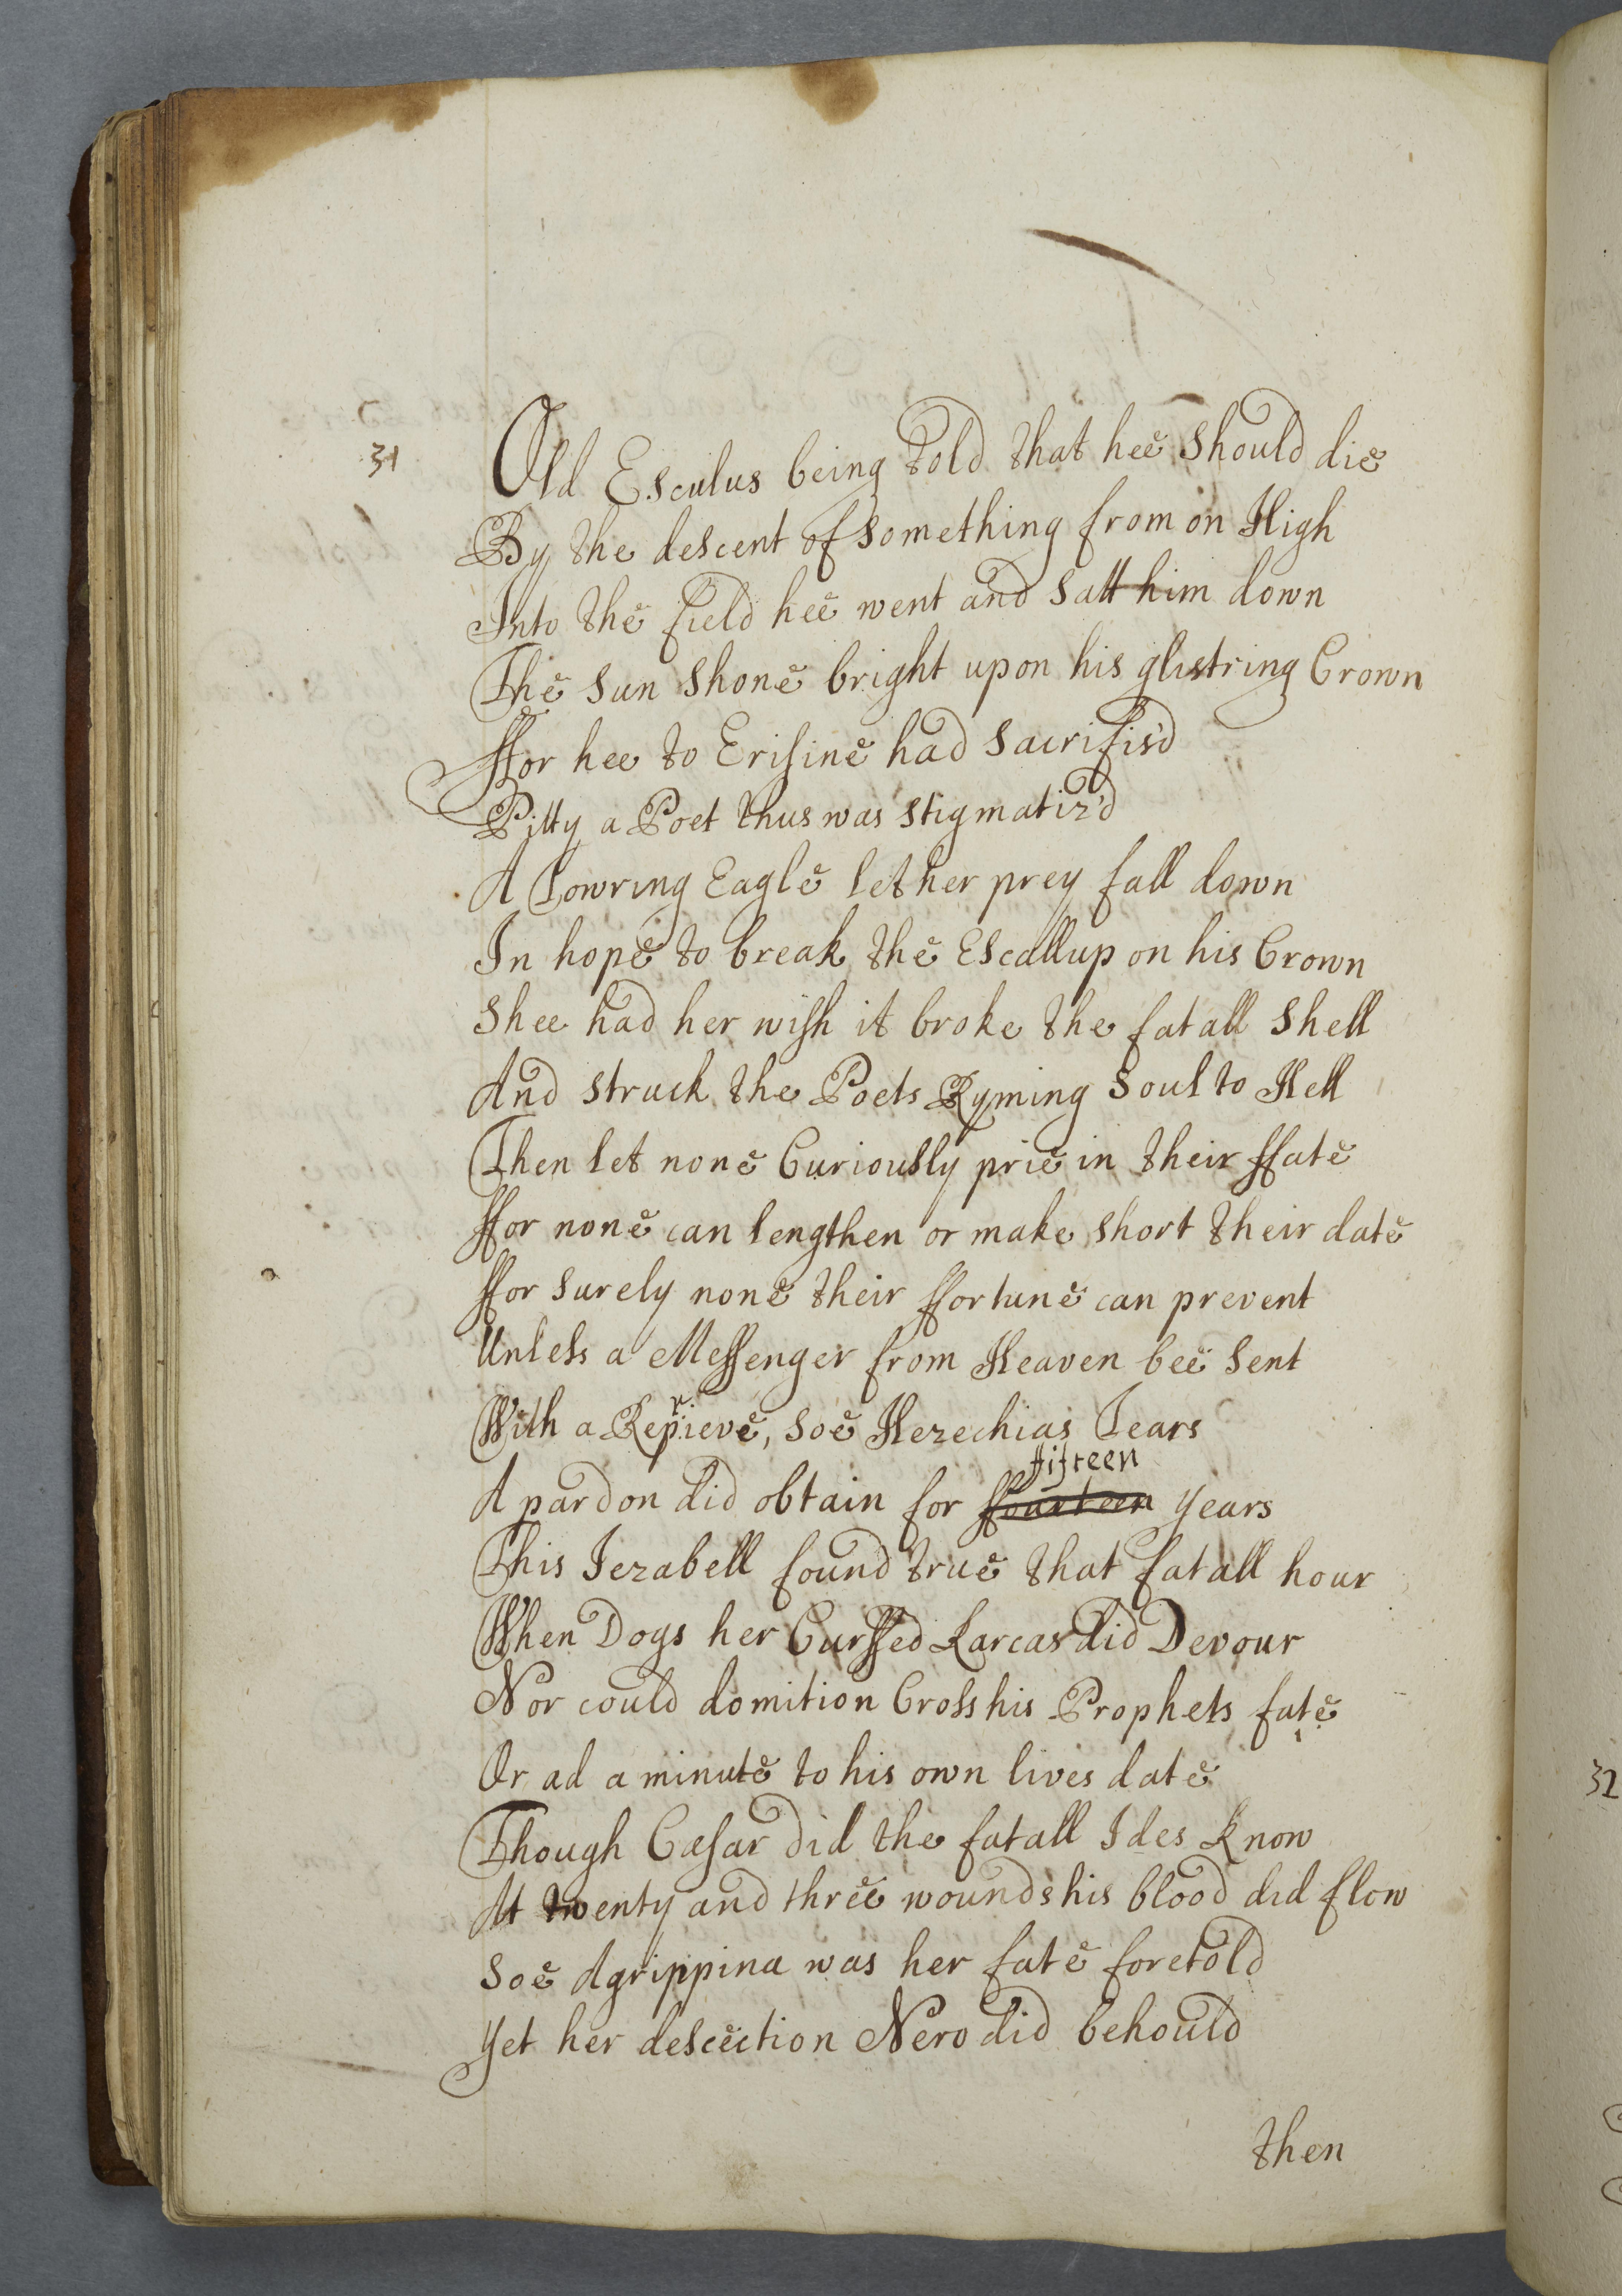 31
Old Esculus being told that hee should die
By the descent of something from on High
Into the field hee went and satt him down
The sun shone bright upon his glistring Crown
ffor hee to Erisine had sacrifis'd
Pitty a Poet thus was stigmatiz'd
A Towring Eagle let her prey fall down
In hope to break the Escallup on his Crown
Shee had her wish it broke the fatall shell
And struck the Poets Ryming soul to Hell
Then let none Curiously prie in their ffate
ffor none can lengthen or make short their date
ffor surely none their ffortune can prevent
Unless a Messenger from Heaven bee sent
With a Reprieve, soe Hezechias Tears
A pardon did obtain for ffourteen fifteen years
This Jezabell found true that fatall hour
When Dogs her Curssed Karcas did Devour
Nor could domition Cross his Prophets fate
Or ad a minute to his own lives date
Though Cæsar did the fatall Ides know
At twenty and three wounds his blood did flow
Soe Agrippina was her fate foretold
Yet her desection Nero did behould
then
32